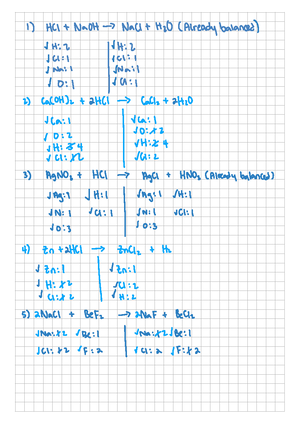 1) HCl + NaOH → NaCl + H₂O (Already balanced)
√ H: 2 | √ H: 2
√ Cl: 1 | √ Cl: 1
√ Na: 1 | √ Na: 1
√ O: 1 | √ O: 1
2) Ca(OH)₂ + 2HCl → CaCl₂ + 2H₂O
√ Ca: 1 | √ Ca: 1
√ O: 2 | √ O: 1 2
√ H: 3 4 | √ H: 2 4
√ Cl: 1 2 | √ Cl: 2
3) AgNO₃ + HCl → AgCl + HNO₃ (Already balanced)
√ Ag: 1 √ H: 1 | √ Ag: 1 √ H: 1
√ N: 1 √ Cl: 1 | √ N: 1 √ Cl: 1
√ O: 3 | √ O: 3
4) Zn + 2HCl → ZnCl₂ + H₂
√ Zn: 1 | √ Zn: 1
√ H: 1 2 | √ Cl: 2
√ Cl: 1 2 | √ H: 2
5) 2NaCl + BeF₂ → 2NaF + BeCl₂
√ Na: 1 2 √ Be: 1 | √ Na: 1 2 √ Be: 1
√ Cl: 1 2 √ F: 2 | √ Cl: 2 √ F: 1 2